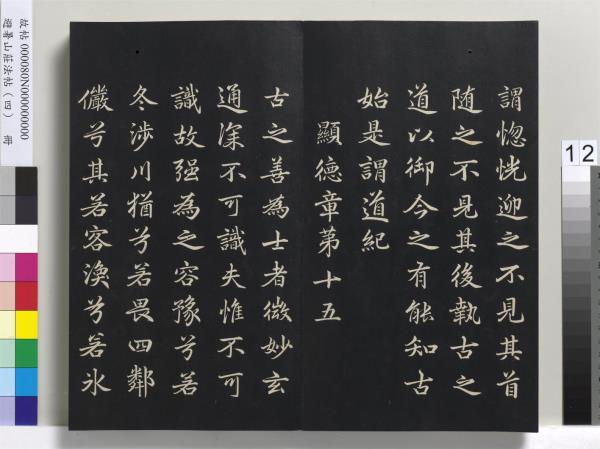 謂惚恍迎之不見其首
随之不見其後執古之
道以御今之有能知古
始是謂道紀
顯德章第十五
古之善為士者微妙玄
通深不可識夫惟不可
識故强為之容豫兮若
冬涉川猶兮若畏四鄰
儼兮其若容渙兮若冰
故帖 000080N000000000
避暑山莊法帖（四） 冊
12